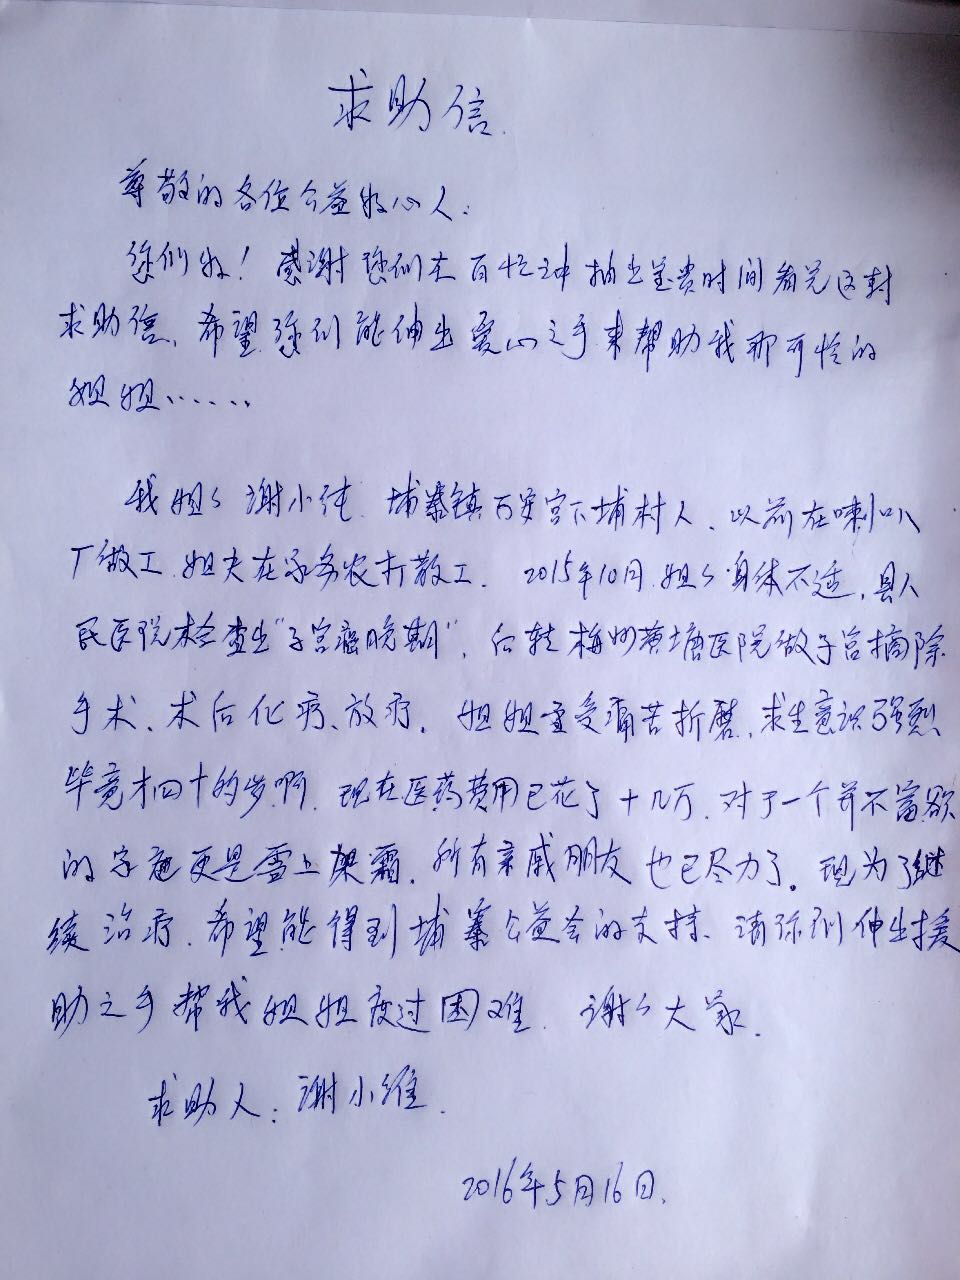 求助信.
尊敬的各位公益好心人:
您们好！感谢您们在百忙之中抽出宝贵时间看完这封
求助信、希望您们能伸出爱心之手来帮助我那可怜的
姐姐......
我姐々谢小纯.埔寨镇万安宫下埔村人、以前在喇叭
厂做工.姐夫在家务农打散工. 2015年10月.姐々身体不适,县人
民医院检查出"子宫癌晚期",后转梅州黄塘医院做子宫摘除
手术、术后化疗、放疗. 姐姐重受痛苦折磨,求生意识强烈
毕竟才四十的岁啊.现在医药费用已花了十几万.对于一个并不富欲
的家庭更是雪上架霜.所有亲戚朋友也已尽力了。现为了继
续治疗.希望能得到埔寨公益会的支持、请你们伸出援
助之手帮我姐姐度过困难. 谢々大家.
求助人:谢小维.
2016年5月16日.